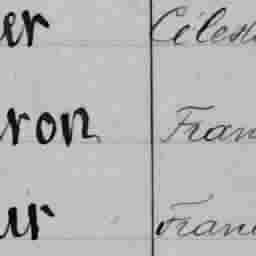 er Célest
ron Fran
ur Fran